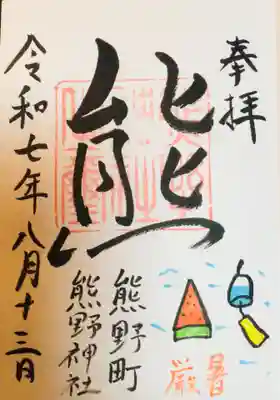 奉拝
熊
熊野町
熊野神社
令和七年八月十三日
厳暑